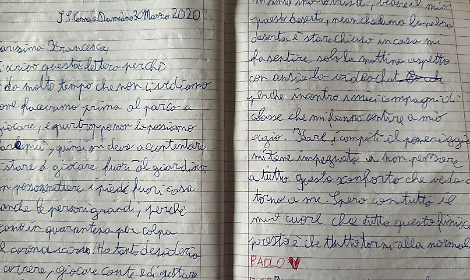 SS. Cosma e Damiano 30 Marzo 2020
arissima Francesca,
scrivo questa lettera perchè
da molto tempo che non ci vediamo
ome facevamo prima al parco a
giocare, e purtroppo non lo possiamo
quindi mi devo accontentare
stare a giocare fuori al giardino
on posso mettere i piedi fuori casa
anche le persone grandi, perchè
siamo in quarantena per colpa
el corona virus. Ho tanto desiderio
correre, giocare con te ed
paese è
deserta e stare chiuso in casa mi
fa sentire solo la mattina aspetto
con ansia la video chat
perchè incontro i miei compagni di
classe che mi fanno sentire a mio
agio. Fare i compiti il pomeriggio
mi tiene impegnato a non pensare
a tutto questo sconforto che vedo
torno a me. Spero con tutto il
mio cuore che tutto questo finisca
presto e che tutto torni alla normal
PAOLO